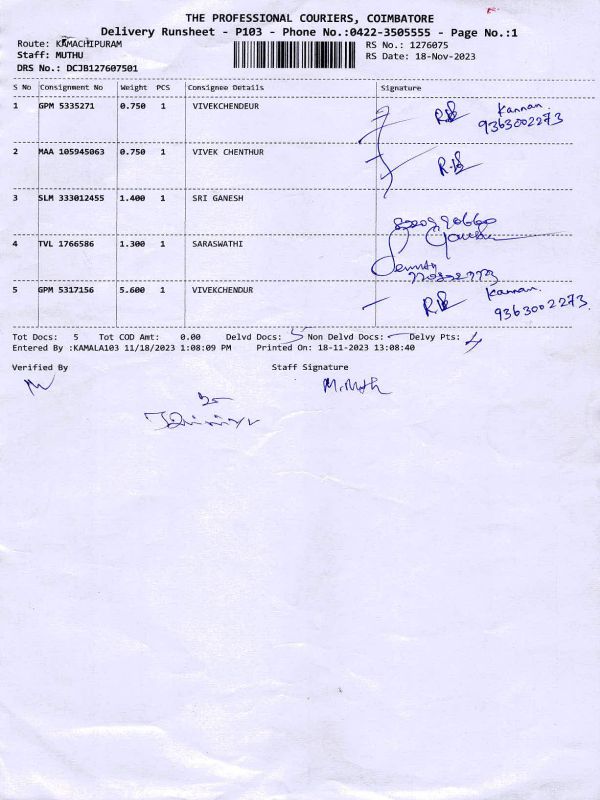 THE PROFESSIONAL COURIERS, COIMBATORE
Delivery Runsheet - P103 - Phone No.:0422-3505555 - Page No.:1
Route: KAMACHIPURAM
RS No.: 1276075
Staff: MUTHU
RS Date: 18-Nov-2023
DRS No.: DCJB127607501
S No Consignment No Weight PCS Consignee Details Signature
1 GPM 5335271 0.750 1 VIVEKCHENDEUR Kannan
9363002273
2 MAA 105945063 0.750 1 VIVEK CHENTHUR
3 SLM 333012455 1.400 1 SRI GANESH
4 TVL 1766586 1.300 1 SARASWATHI
5 GPM 5317156 5.600 1 VIVEKCHENDUR Kannan
9363002273
Tot Docs: 5 Tot COD Amt: 0.00 Delvd Docs: 5 Non Delvd Docs: - Delvy Pts: 4
Entered By :KAMALA103 11/18/2023 1:08:09 PM Printed On: 18-11-2023 13:08:40
Verified By Staff Signature